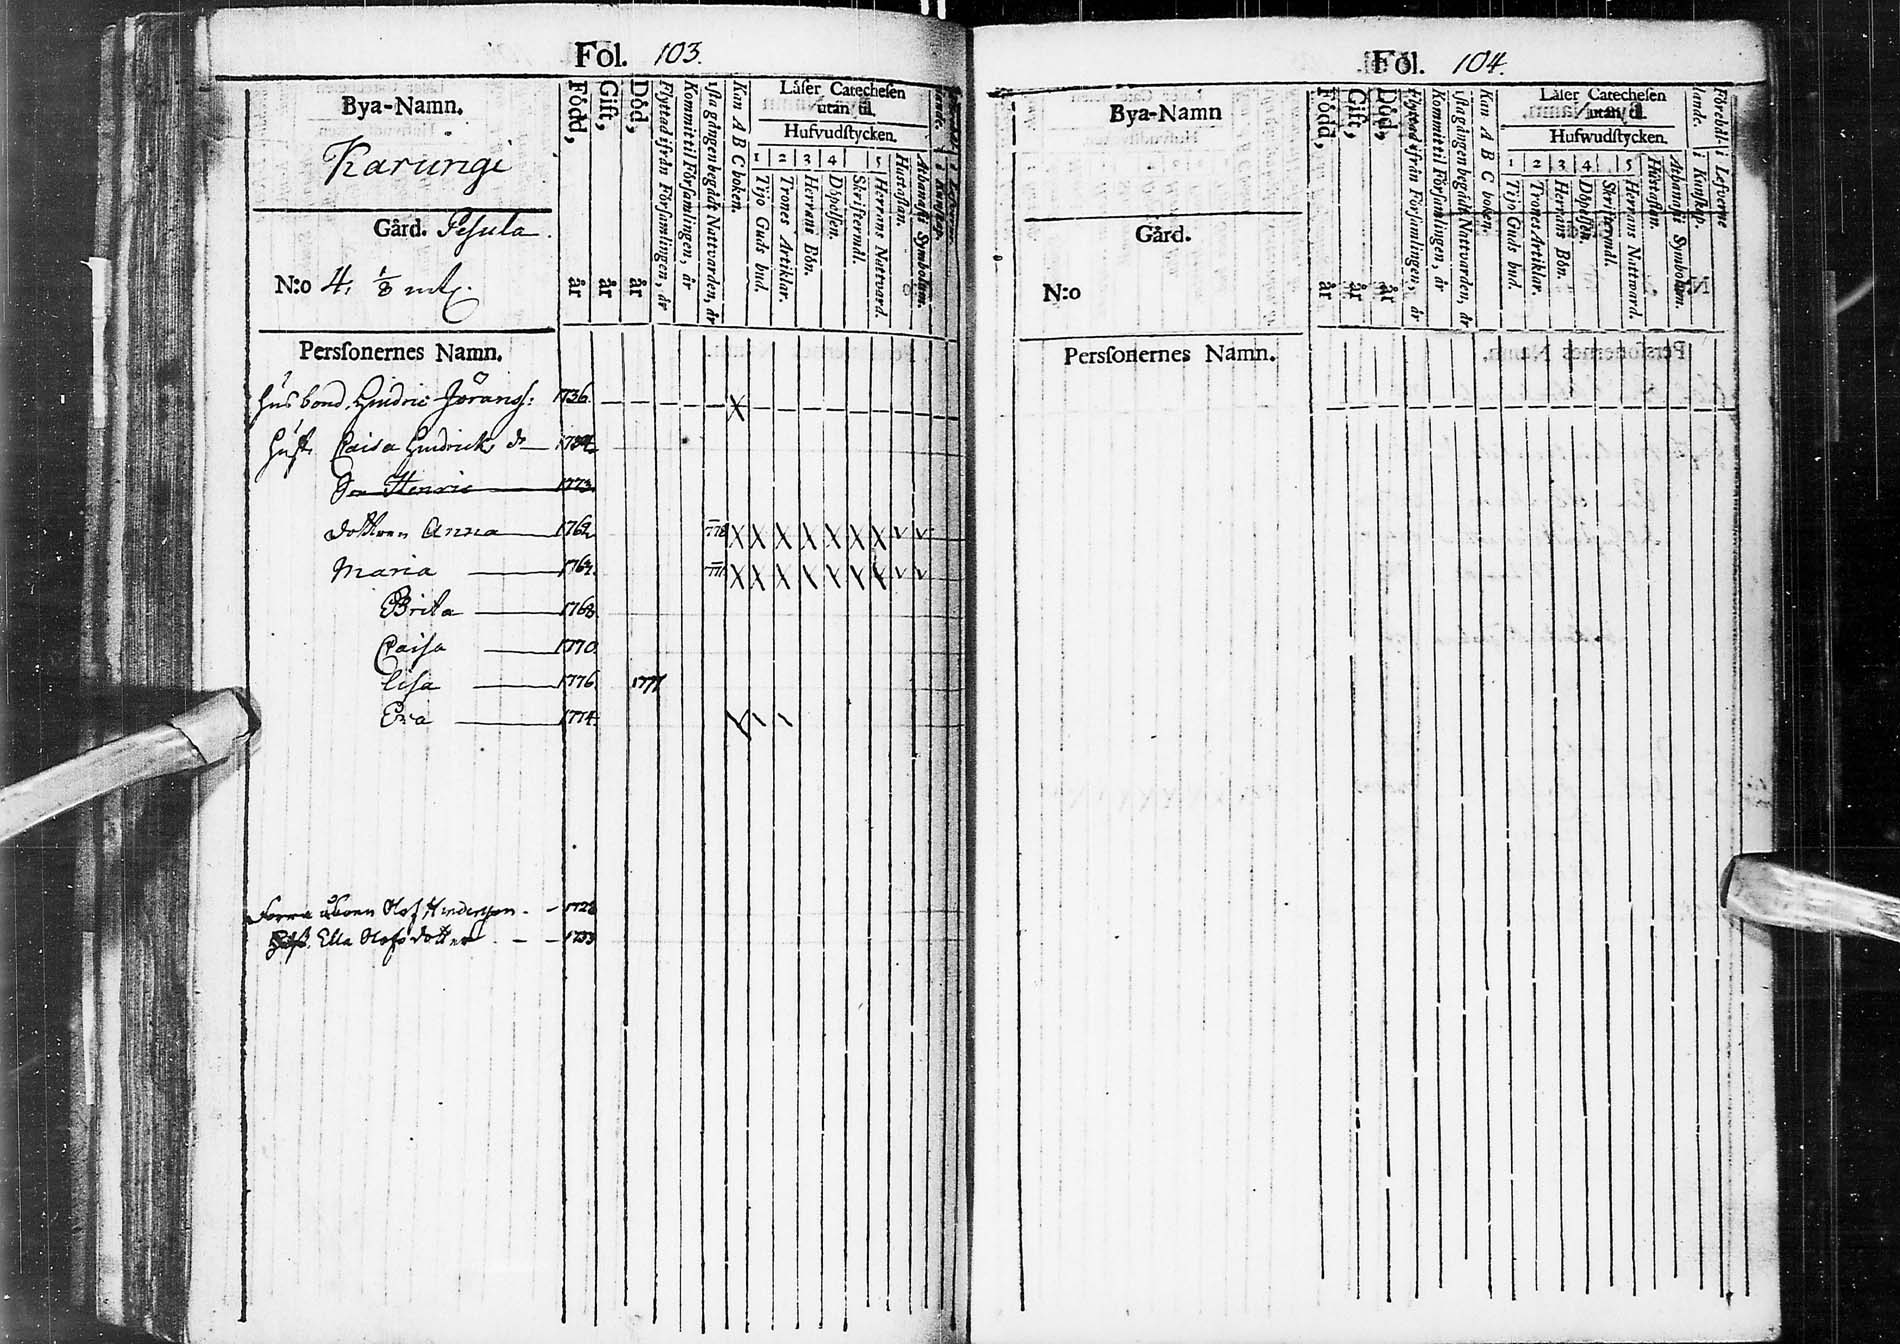 Fol. 103.
Bya-Namn.
Karungi
Gård. Pesula
N:o 4. 1/8 mtl.
Född, år
Gift, år
Död, år
Flyttad ifrån Församlingen, år
Kommit til Församlingen, år
1sta gången begådt Nattvarden, år
Kan A B C boken.
Låser Catechesen
utan til.
Hufvudstycken.
1 2 3 4 5
Tijo Guds bud.
Trones Artiklar.
Herrans Bön.
Döpelsen.
Skriftermål.
Herrans Nattvard.
Hustaflan.
Athanasii Symbolum.
Personernes Namn.
Husbond. Hindric Jöranss: 1736.
Hust. Caisa Hindricks dr
Son Henric 1773.
dottren Anna 1762 778 X X X X X X X
Maria X X X X X X X
Brita 1768
Caisa 1770
Lisa 1776. 1777
Eva 1774.
Förra åboen Olof Hindersson 1728
Hust. Ella Olofs dotter 1733
Fol. 104.
Bya-Namn
Gård.
N:o
Född, år
Gift, år
Död, år
Flyttad ifrån Församlingen, år
Kommit til Församlingen, år
1sta gången begådt Nattvarden, år
Kan A B C boken.
Låser Catechesen
utan til.
Hufwudstycken.
1 2 3 4 5
Tijo Guds bud.
Trones Artiklar.
Herrans Bön.
Döpelsen.
Skriftermål.
Herrans Nattvard
Hustaflan.
Athanasii Symbolum.
Förehållande. i Kunskap.
i Lefverne
Personernes Namn.